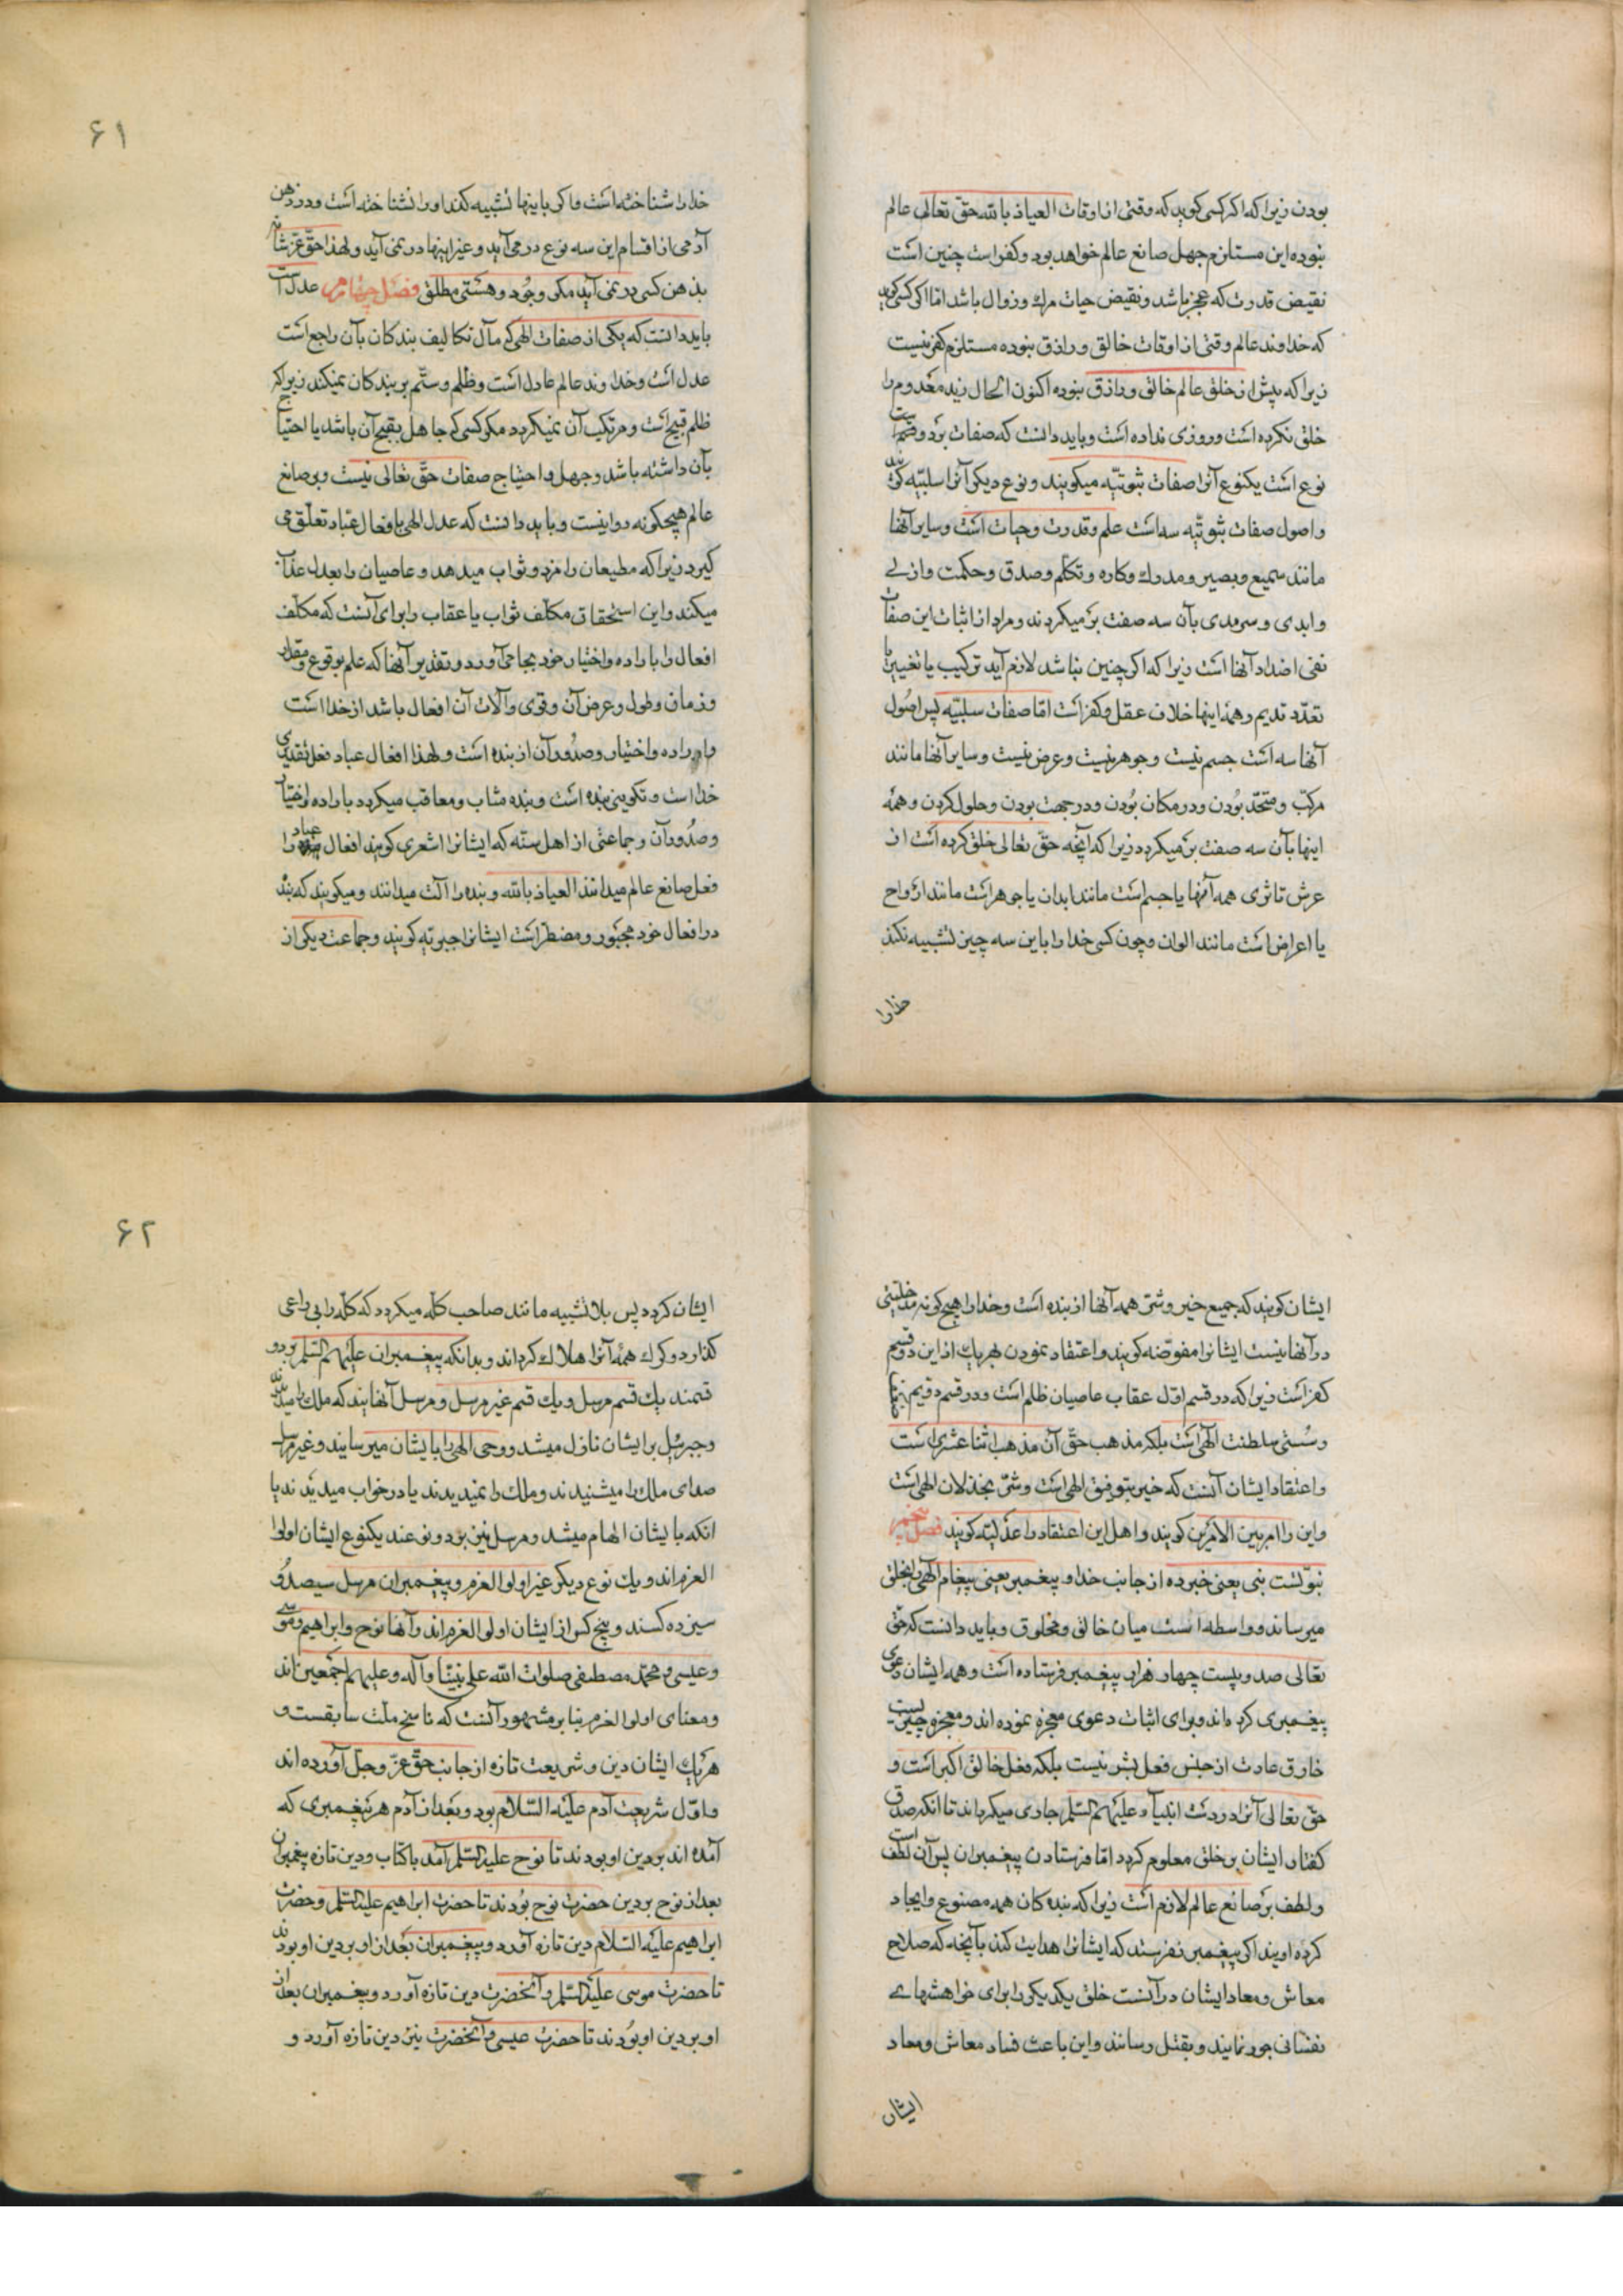 بودن زیرا که اکر کسی کوید که وقتی از اوقات العیاذ بالله حق تعالی عالم
نبوده این مستلزم جهل صانع عالم خواهد بود و کفر است چنین است
نقیض قدرت که عجز باشد و نقیض حیات مرك و زوال باشد اما اکر کسی کوید
که خداوند عالم وقتی از اوقات خالق و رازق نبوده مستلزم کفر نیست
زیرا که پیش از خلق عالم خالق و رازق نبوده اکنون الحال زید معدوم را
خلق نکرده است و روزی نداده است و باید دانست که صفات بر دو قسم است
نوع است یکنوع آنرا صفات ثبوتیه میکویند و نوع دیکر آنرا سلبیه کویند
و اصول صفات ثبوتیه سه است علم و قدرت و حیات است و سایر آنها
مانند سمیع و بصیر و مدرك و کاره و تکلم و صدق و حکمت و ازلی
و ابدی و سرمدی بآن سه صفت بر میکردند و مراد از اثبات این صفات
نفی اضداد آنها است زیرا که اکر چنین نباشد لازم آید ترکیب یا تغییر یا
تعدد قدیم و همه اینها خلاف عقل و کفر است اما صفات سلبیه پس اصول
آنها سه است جسم نیست و جوهر نیست و عرض نیست و سایر آنها مانند
مرکب و متحد بودن و در مکان بودن و در جهت بودن و حلول کردن و همه
اینها بآن سه صفت بر میکردد زیرا که آنچه حق تعالی خلق کرده است از
عرش تا ثری همه آنها یا جسم است مانند ابدان یا جوهر است مانند ارواح
یا اعراض است مانند الوان و چون کسی خدا را باین سه چیز تشبیه نکند
خدا را
۶۱
خدا را شناخته است و اکر باینها تشبیه کند او را نشناخته است و در ذهن
آدمی از اقسام این سه نوع در می آید و غیر اینها در نمی آید و لهذا حق عز شانه
بذهن کسی در نمی آید مکر وجود و هستی مطلق فصل چهارم عدل است
باید دانست که یکی از صفات الهی که مآل تکالیف بندکان بآن راجع است
عدل است و خداوند عالم عادل است و ظلم و ستم بر بندکان نمیکند زیرا که
ظلم قبیح است و مرتکب آن نمیکردد مکر کسی که جاهل بقبح آن باشد یا احتیاج
بآن داشته باشد و جهل و احتیاج صفات حق تعالی نیست و بر صانع
عالم هیچکونه روا نیست و باید دانست که عدل الهی بافعال عباد تعلق می
کیرد زیرا که مطیعان را مزد و ثواب میدهد و عاصیان را بعدل عذاب
میکند و این استحقاق مکلف ثواب یا عقاب را برای آنست که مکلف
افعال را باراده و اختیار خود بجا می آورد و تقدیر آنها که علم بوقوع و مقدار
و زمان و طول و عرض آن و قوی و آلات آن افعال باشد از خدا است
و اراده و اختیار و صدور آن از بنده است و لهذا افعال عباد فعل تقدیری
خدا است و تکوینی بنده است و بنده مثاب و معاقب میکردد باراده و اختیار
و صدور آن و جماعتی از اهل سنه که ایشانرا اشعری کویند افعال عباد را
فعل صانع عالم میدانند العیاذ بالله و بنده را آلت میدانند و میکویند که بنده
در افعال خود مجبور و مضطر است ایشانرا جبریه کویند و جماعت دیکر از
ایشان کویند که جمیع خیر و شر همه آنها از بنده است و خدا را هیچ کونه مدخلیتی
در آنها نیست ایشانرا مفوضه کویند و اعتقاد نمودن بهر یك از این دو قسم
کفر است زیرا که در قسم اول عقاب عاصیان ظلم است و در قسم دویم
و سستی سلطنت الهی است بلکه مذهب حق آن مذهب اثنا عشری است
و اعتقاد ایشان آنست که خیر بتوفیق الهی است و شر بخذلان الهی است
و این را امر بین الامرین کویند و اهل این اعتقاد را عدلیه کویند فصل پنجم
نبوتست نبی یعنی خبر ده از جانب خدا و پیغمبر یعنی پیغام الهی را بخلق
میرساند و واسطه است میان خالق و مخلوق و باید دانست که حق
تعالی صد و بیست چهار هزار پیغمبر فرستاده است و همه ایشان دعوی
پیغمبری کرده اند و برای اثبات دعوی معجزه نموده اند و معجزه چیزیست
خارق عادت از جنس فعل بشر نیست بلکه فعل خالق اکبر است و
حق تعالی آنرا در دست انبیاء علیهم السلم جاری میکرداند تا آنکه صدق
کفتار ایشان بر خلق معلوم کردد اما فرستادن پیغمبران پس آن لطف است
و لطف بر صانع عالم لازم است زیرا که بنده کان همه مصنوع و ایجاد
کرده اویند اکر پیغمبر نفرستد که ایشانرا هدایت کند بآنچه که صلاح
معاش و معاد ایشان در آنست خلق یکدیکر را برای خواهشهای
نفسانی جور نمایند و بقتل رسانند و این باعث فساد معاش و معاد
ایشان
۶۲
ایشان کردد پس بلا تشبیه مانند صاحب کله میکردد که کله را بی راعی
کذارد و کرك همه آنرا هلاك کرداند و بدانکه پیغمبران علیهم السلم بر دو
قسمند یك قسم مرسل و یك قسم غیر مرسل و مرسل آنهایند که ملك را میدیدند
و جبرئیل بر ایشان نازل میشد و وحی الهی را بایشان میرسانید و غیر مرسل
صدای ملك را میشنیدند و ملك را نمیدیدند یا در خواب میدیدند یا
انکه بایشان الهام میشد و مرسل نیز بر دو نوعند یکنوع ایشان اولوا
العزم اند و یك نوع دیکر غیر اولو العزم و پیغمبران مرسل سیصد و
سیزده کسند و پنج کس از ایشان اولو العزم اند و آنها نوح و ابراهیم و موسی
و عیسی و محمد مصطفی صلوات الله علی نبینا و آله و علیهم اجمعین اند
و معنای اولو العزم بنا بر مشهور آنست که ناسخ ملت سابقست و
هر یك ایشان دین و شریعت تازه از جانب حق عز و جل آورده اند
و اول شریعت آدم علیه السلام بود و بعد از آدم هر پیغمبری که
آمده اند بر دین او بودند تا نوح علیه السلم آمد با کتاب و دین تازه پیغمبران
بعد از نوح بر دین حضرت نوح بودند تا حضرت ابراهیم علیه السلم و حضرت
ابراهیم علیه السلام دین تازه آورد و پیغمبران بعد از او بر دین او بودند
تا حضرت موسی علیه السلم و آنحضرت دین تازه آورد و پیغمبران بعد از
او بر دین او بودند تا حضرت عیسی و آنحضرت نیز دین تازه آورد و